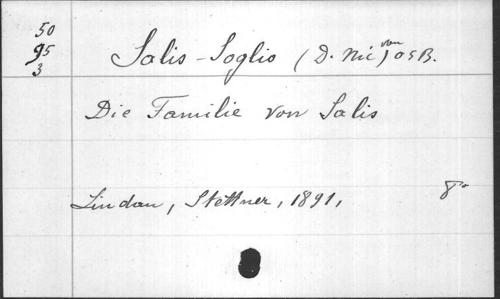 50
95
3
Salis-Soglio (D. Nic) von OSB.
Die Familie von Salis
Lindau, Stettner, 1891,
8°